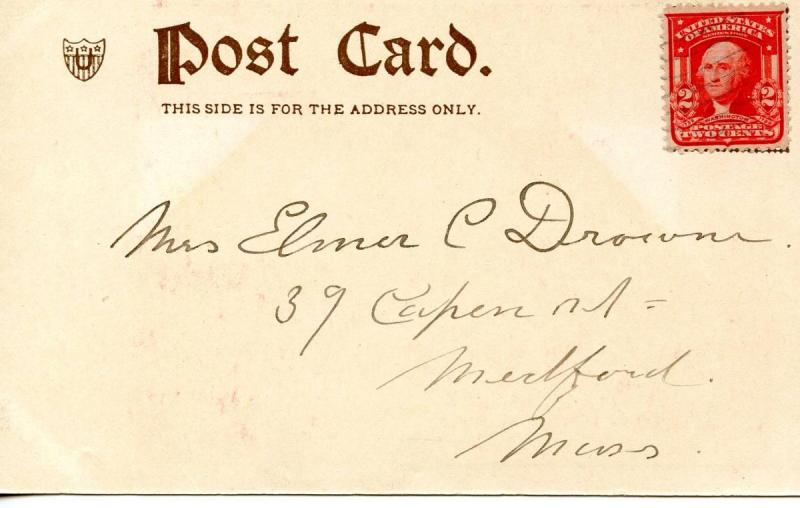 U
Post Card.
THIS SIDE IS FOR THE ADDRESS ONLY.
UNITED STATES
OF AMERICA
2 2
WASHINGTON
POSTAGE
TWO CENTS
Mrs Elmer C Drowne.
39 Capen st =
Medford.
Mass.